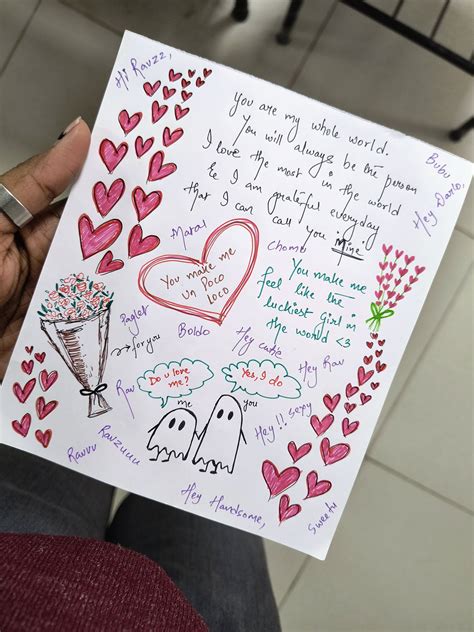 Hi Ravzz,
You are my whole world.
You will always be the person
I love the most in the world
& I am grateful everyday
that I can call you Mine
Bubu
Hey Danto,
Matal
Chomu
You make me
Un Poco
Loco
You make me
feel like the
luckiest girl in
the world <3
Paglet
→ for you
Boldo
Hey cutie
Hey Rav
Rav
Do u love
me?
Yes, I do
me
you
Hey!! Sexy
Ravuu
Ravzuuu
Hey Handsome,
Sweetu